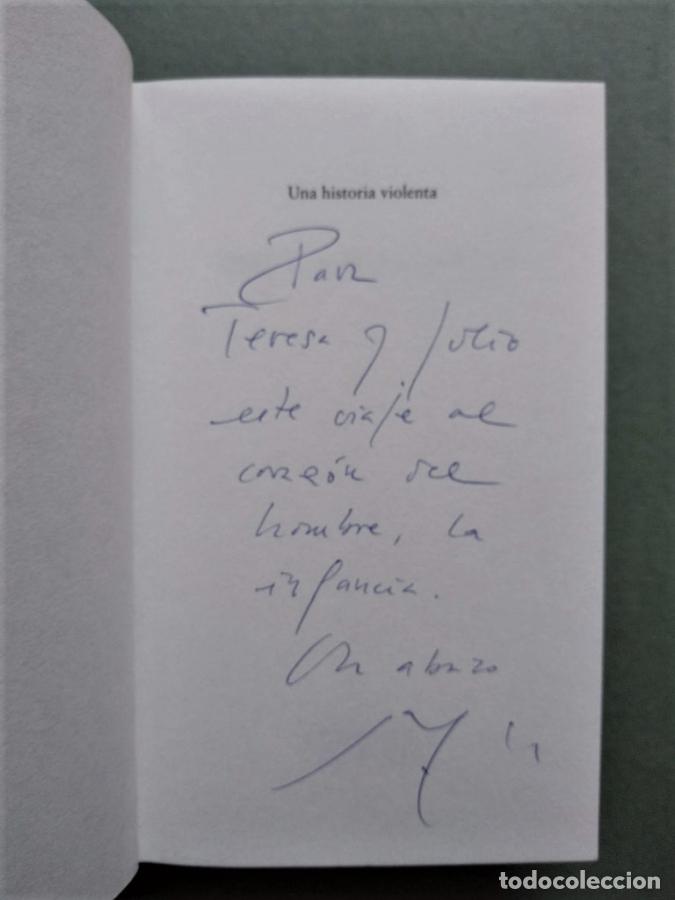 Una historia violenta
Para
Teresa y Julio
este viaje al
corazón del
hombre, la
infancia.
Un abrazo
todocoleccion